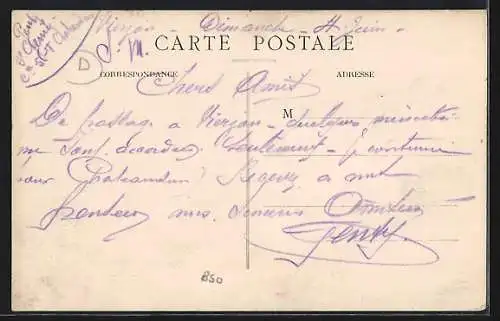 Vierzon Dimanche 4 Juin
S. M.
CARTE POSTALE
D
CORRESPONDANCE
ADRESSE
Chers Amis
M
De passage a Vierzon quelques minutes
me sont accordées. Seulement Je continue
sur Chateaudun. Recevez a
mes Sincères Amitiés
Genty
B50